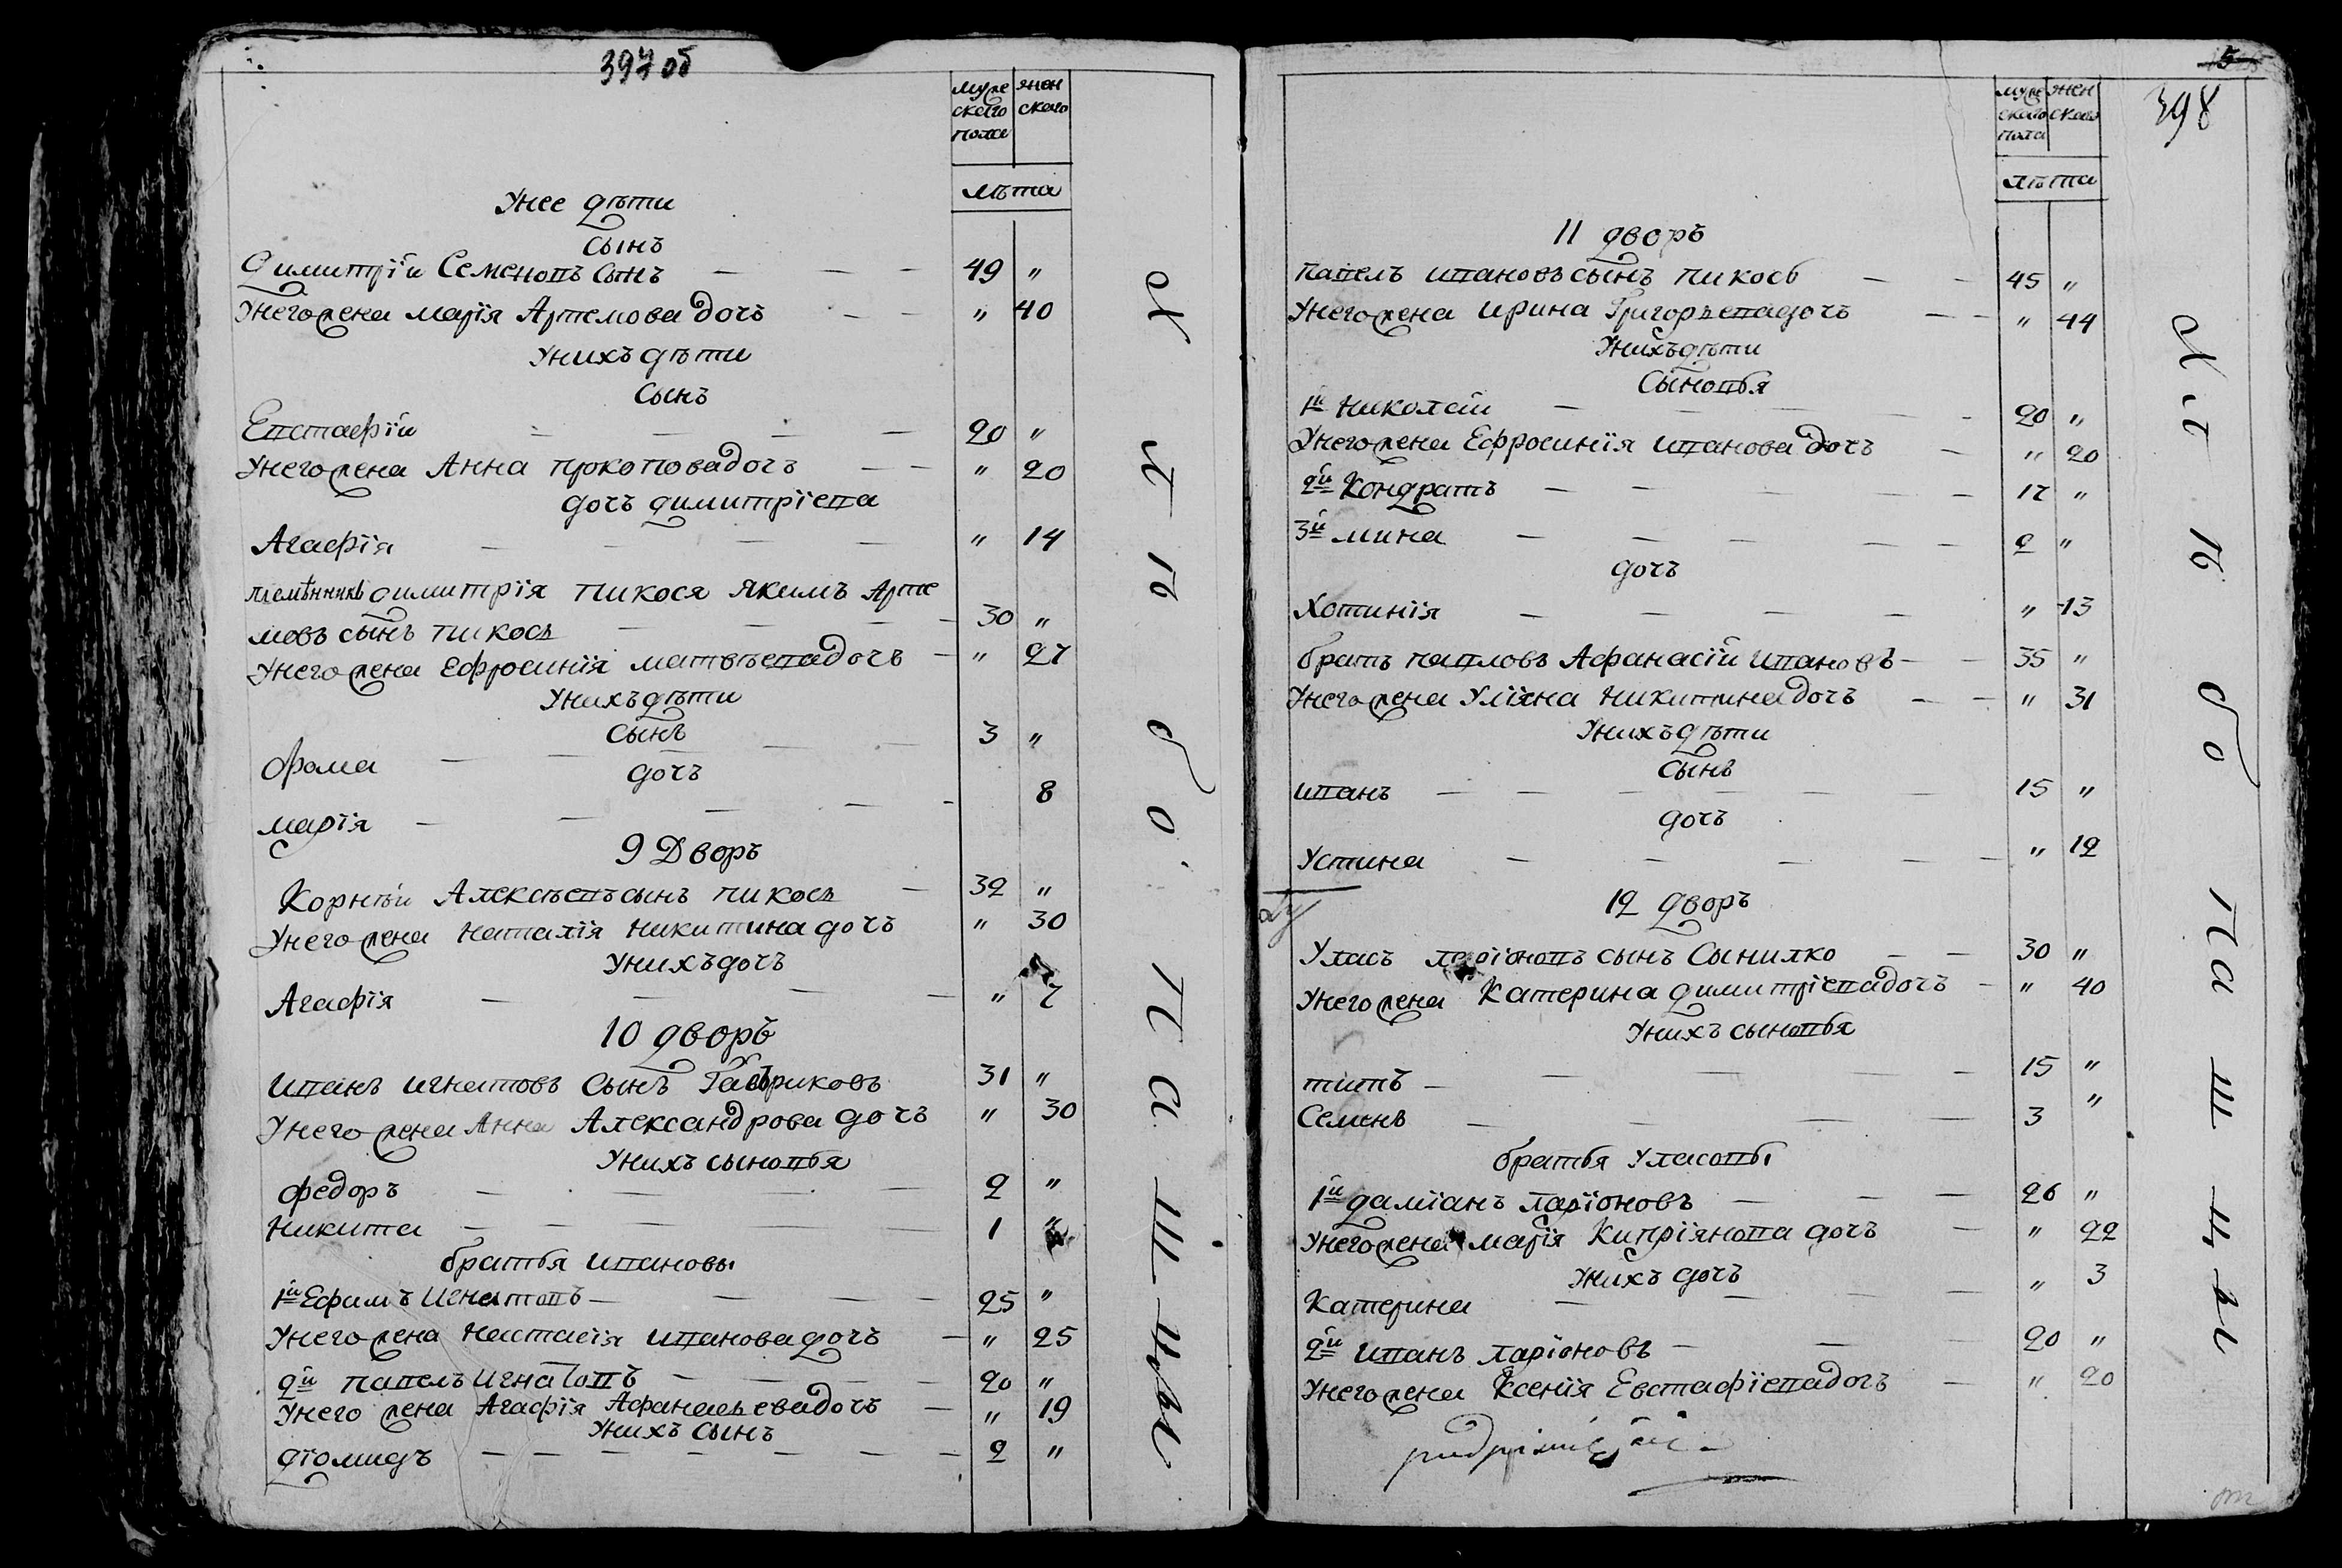 397 об
мужеского пола женского
лѣта
Унее дѣти
сынъ
Димитрїй Семеновъ сынъ — — — 49 "
Унего жена марїя Артемова дочь — — " 40
Унихъ дѣти
Сынъ
Евстафїй — — — — 20 "
Унего жена Анна прокопова дочъ — — " 20
дочъ димитрїева
Агафїя — — — — " 14
племѣнникъ димитрїя пикося Якимъ Арте
мовъ сынъ пикось — — — 30 "
Унего жена Ефросинїя матвѣева дочъ — " 27
Унихъ дѣти
Сынъ
Фома — — — — 3 "
дочъ
марїя — — — — 8
9 Дворъ
Корнѣй Алексѣевъ сынъ пикось — 32 "
Унего жена наталїя никитина дочъ " 30
Унихъ дочъ
Агафїя — — — — " 7
10 дворъ
иванъ игнатовъ сынъ Гавриковъ 31 "
Унего жена Анна Александрова дочъ " 30
Унихъ сыновья
федоръ — — — — 2 "
никита — — — — 1 "
братья ивановы
1й Ефимъ игнатовъ — — — — 25 "
Унего жена настасїя иванова дочъ — " 25
2й павелъ игнатовъ — — — — 20 "
Унего жена Агафїя Афанасьева дочъ — " 19
Унихъ сынъ
дїомидъ — — — — — — — 2 "
Х л ѣ б о п а ш ц ы
5
398
мужеского пола женского
лѣта
11 дворъ
павелъ ивановъ сынъ пикось — — 45 "
Унего жена ирина Григорьева дочъ — — " 44
Унихъ дѣти
Сыновья
1й николай — — — — 20 "
Унего жена Ефросинїя иванова дочъ — " 20
2й Кондратъ — — — — 17 "
3й мина — — — — — 2 "
дочъ
Хотинїя — — — — " 13
братъ павловъ Афанасїй ивановъ — — 35 "
Унего жена Улїяна никитина дочъ — — " 31
Унихъ дѣти
сынъ
иванъ — — — — — — 15 "
дочъ
Устина — — — — — " 12
12 дворъ
Уласъ ларїоновъ сынъ Сынилко — — 30 "
Унего жена Катерина димитрїева дочъ — " 40
Унихъ сыновья
титъ — — — — — 15 "
Семенъ — — — — 3 "
братья Уласовы
1й дамїанъ ларїоновъ — — — 26 "
Унего жена марїя Кипрїянова дочъ — " 22
Унихъ дочъ
Катерина — — — — " 3
2й иванъ ларїоновъ — — — 20 "
Унего жена Ксенїя Евстафїева дочъ — " 20
Х л ѣ б о п а ш ц ы